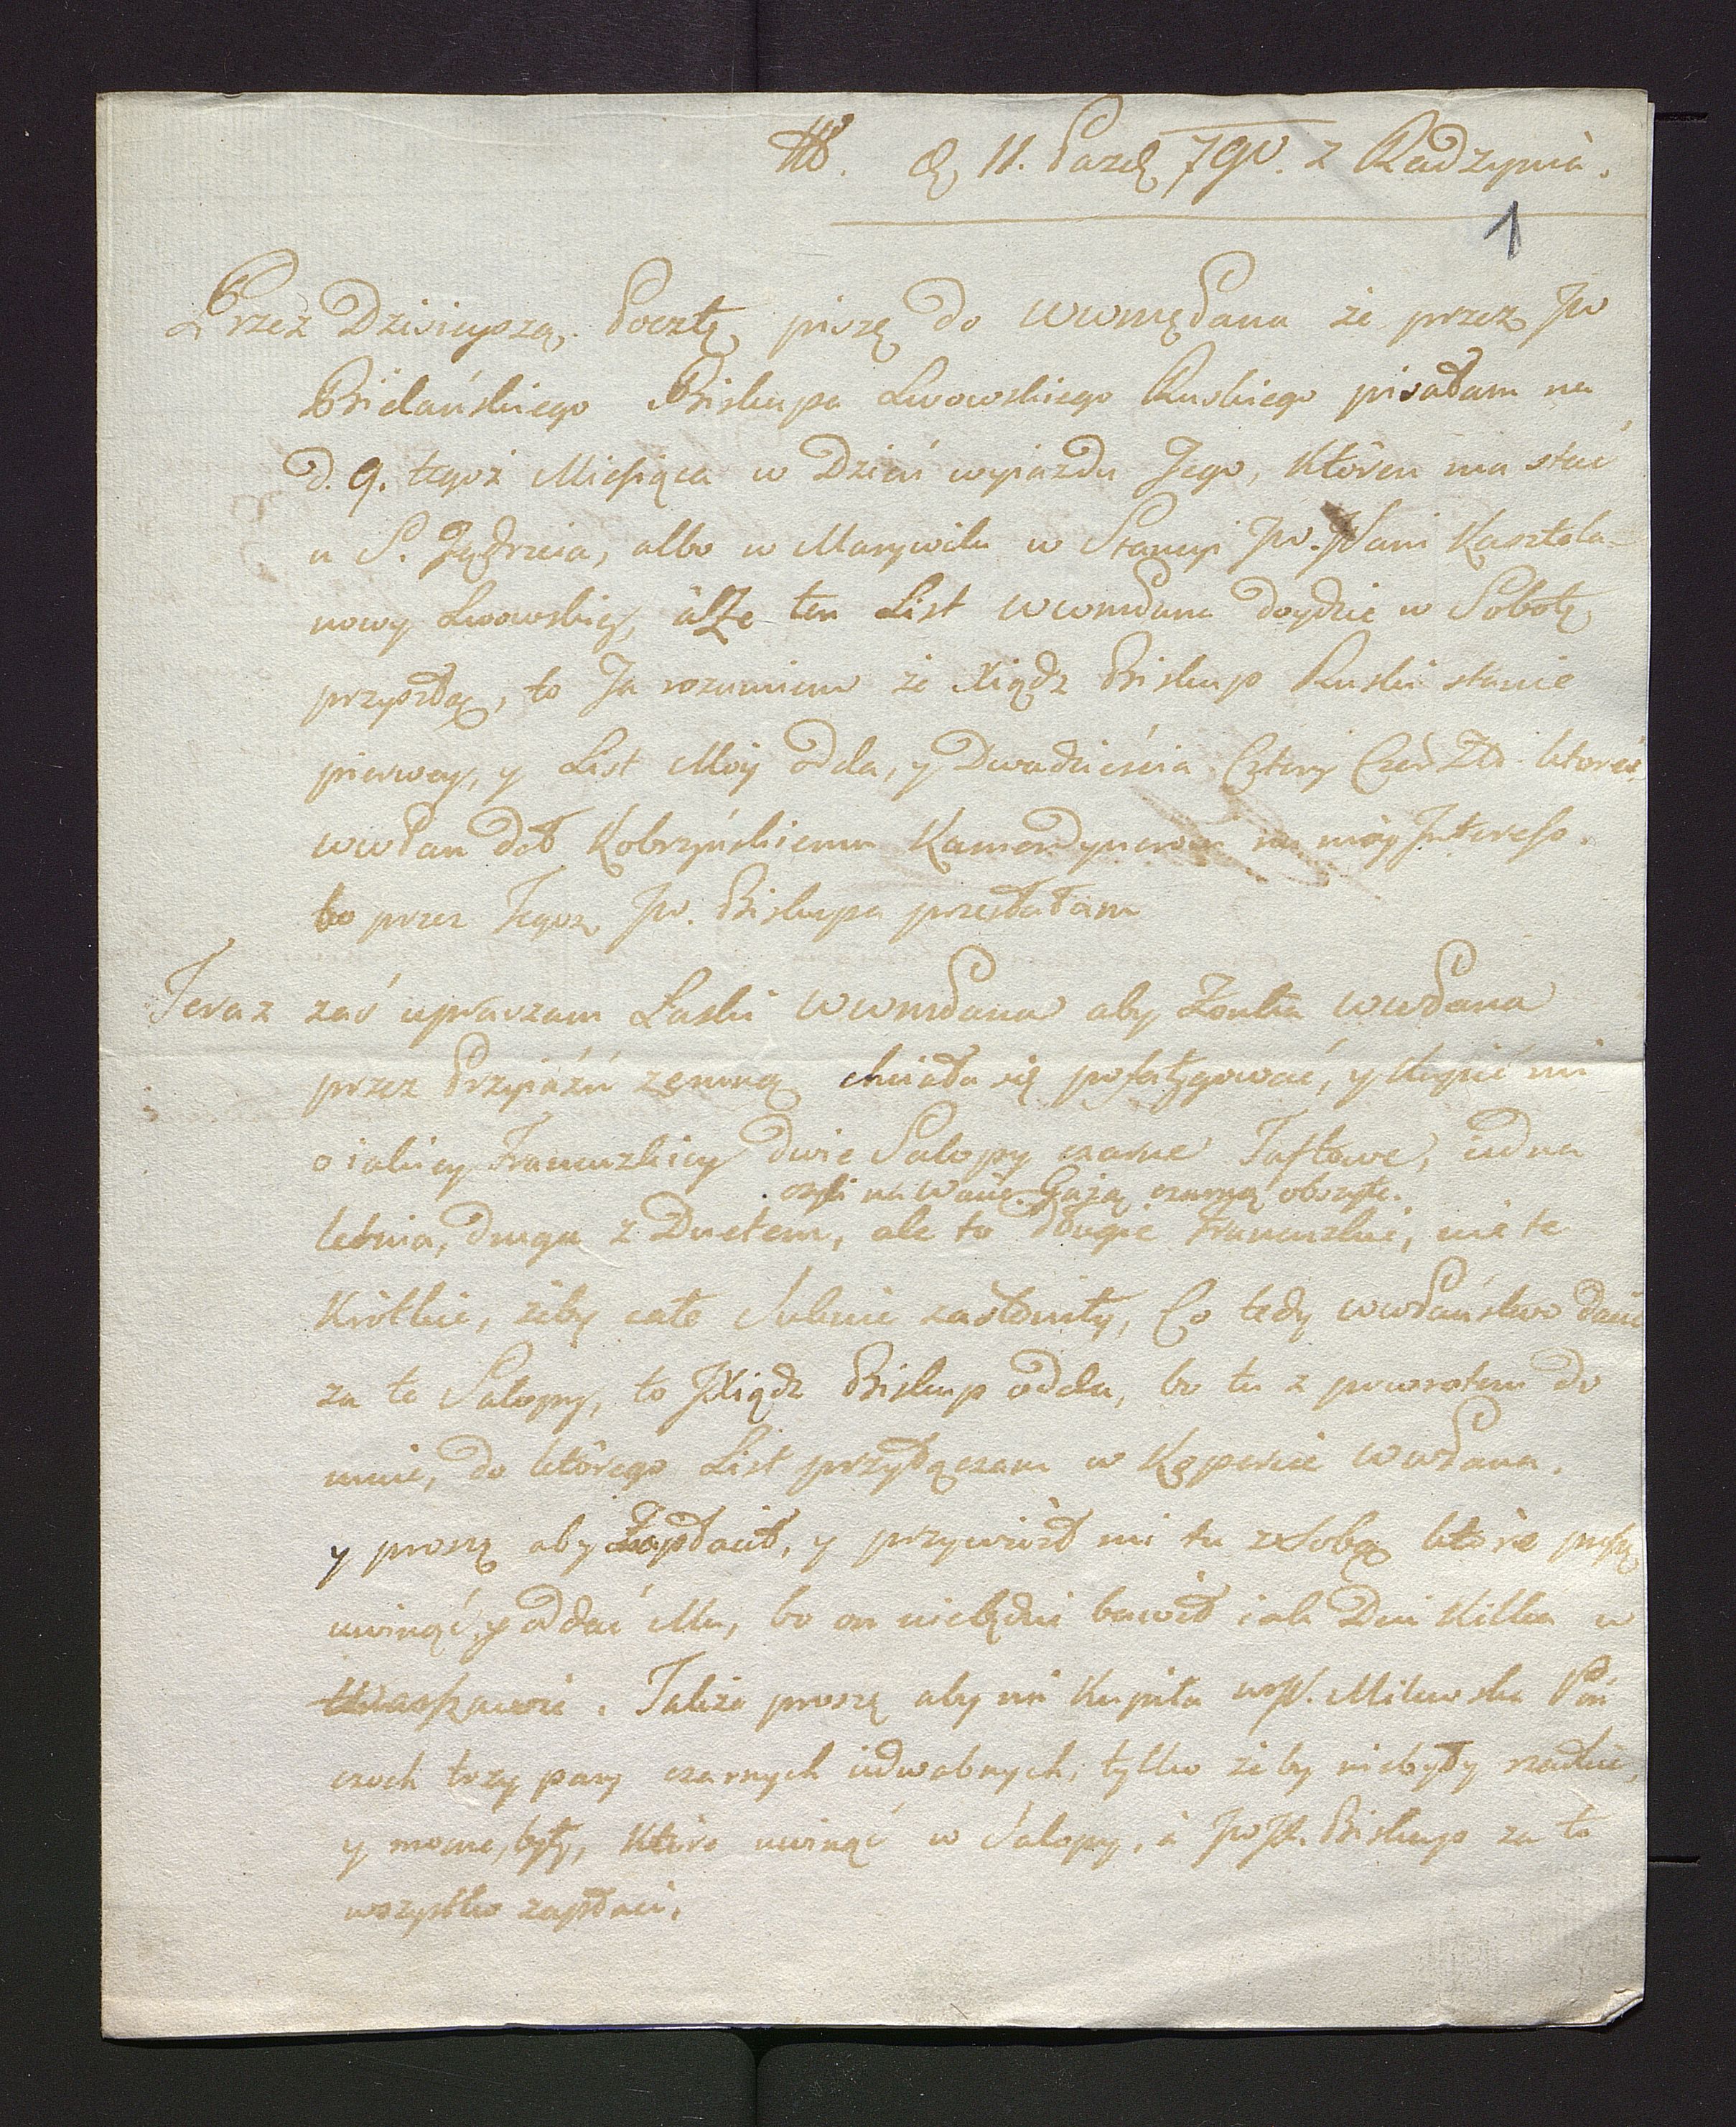 d. 11. Pazd. 790. z Radzynia.
1
Przez Dzisieyszą Pocztę piszę do WWMPana że przez Jw
Bielańskiego Biskupa Lwowskiego Ruskiego pisałam na
d. 9. tegoż Miesiąca w Dzień wyiazdu Jego, Któren ma stać
u S. Jędrzeia, albo w Marywilu w Stancyi Jw. JPani Kasztela=
nowy Lwowskiey, a że ten List WWMPana doydzie w Sobotę
przyszłą, to Ja rozumiem że Xiądz Biskup Ruski stanie
pierwey, y List Móy odda, y Dwadzieścia Cztery Czer Zł. któreś
WWPan dał Kobrzyńskiemu Kamerdynerowi na móy Interess.
to przez Tegoż Jw. Biskupa przesłałam
Teraz zaś upraszam Łaski WWMPana aby Żonka WWPana
przez Przyiaźń zemną chciała się pofatygować, y Kupić mi
o iakiey Francuzkiey dwie Salopy czarne Taftowe, iedna
czyli na Wacie. Gazą czarną obszyte.
letnia, druga z Duchem, ale to długie Francuzkie, nie te
Krótkie, żeby całe Suknie zasłoniły, Co tedy WWPaństwo dacie
za te Salopy, to JXiądz Biskup odda, bo tu z powrotem do
mnie, do którego List przyłączam w Kopercie WWPana.
y proszę aby zapłacił, y przywiózł mi tu z Sobą które proszę
uwinąć y oddać Mu, bo on niebędzie bawił iak Dni Kilka w
Warszawie. Także proszę aby mi Kupiła WJP. Milewska Poń
czoch trzy pary czarnych iedwabnych, tylko żeby niebyły rzadkie,
y mocne były, Które uwinąć w Salopy, a JwJX. Biskup za to
wszystko zapłaci.